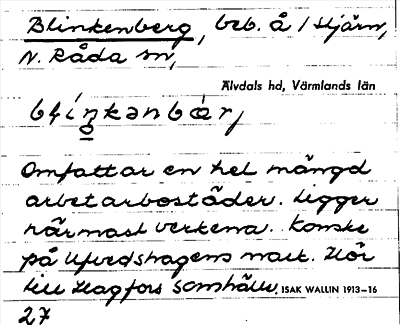 Blinkenberg, beb. å / Stjärn,
N. Råda sn,
Älvdals hd, Värmlands län
Omfattar en hel mängd
arbetarbostäder. Ligger
närmast verkena. Kanske
på Uvedshagens mark. Hör
till Hagfors samhälle.
ISAK WALLIN 1913–16
27